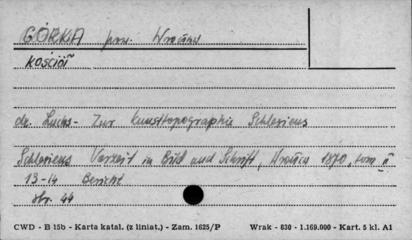 GÓRKA pow. Wrocław
KOŚCIÓŁ
dr. Luchs - Zur Kunsttopographie Schlesiens
Schlesiens Vorzeit in Bild und Schrift, 1870, tom II
13-14 Bericht
str. 44
CWD - B 15b - Karta katal. (z liniat.) - Zam. 1625/P Wrak - 630 - 1.169.000 - Kart. 5 kl. A1